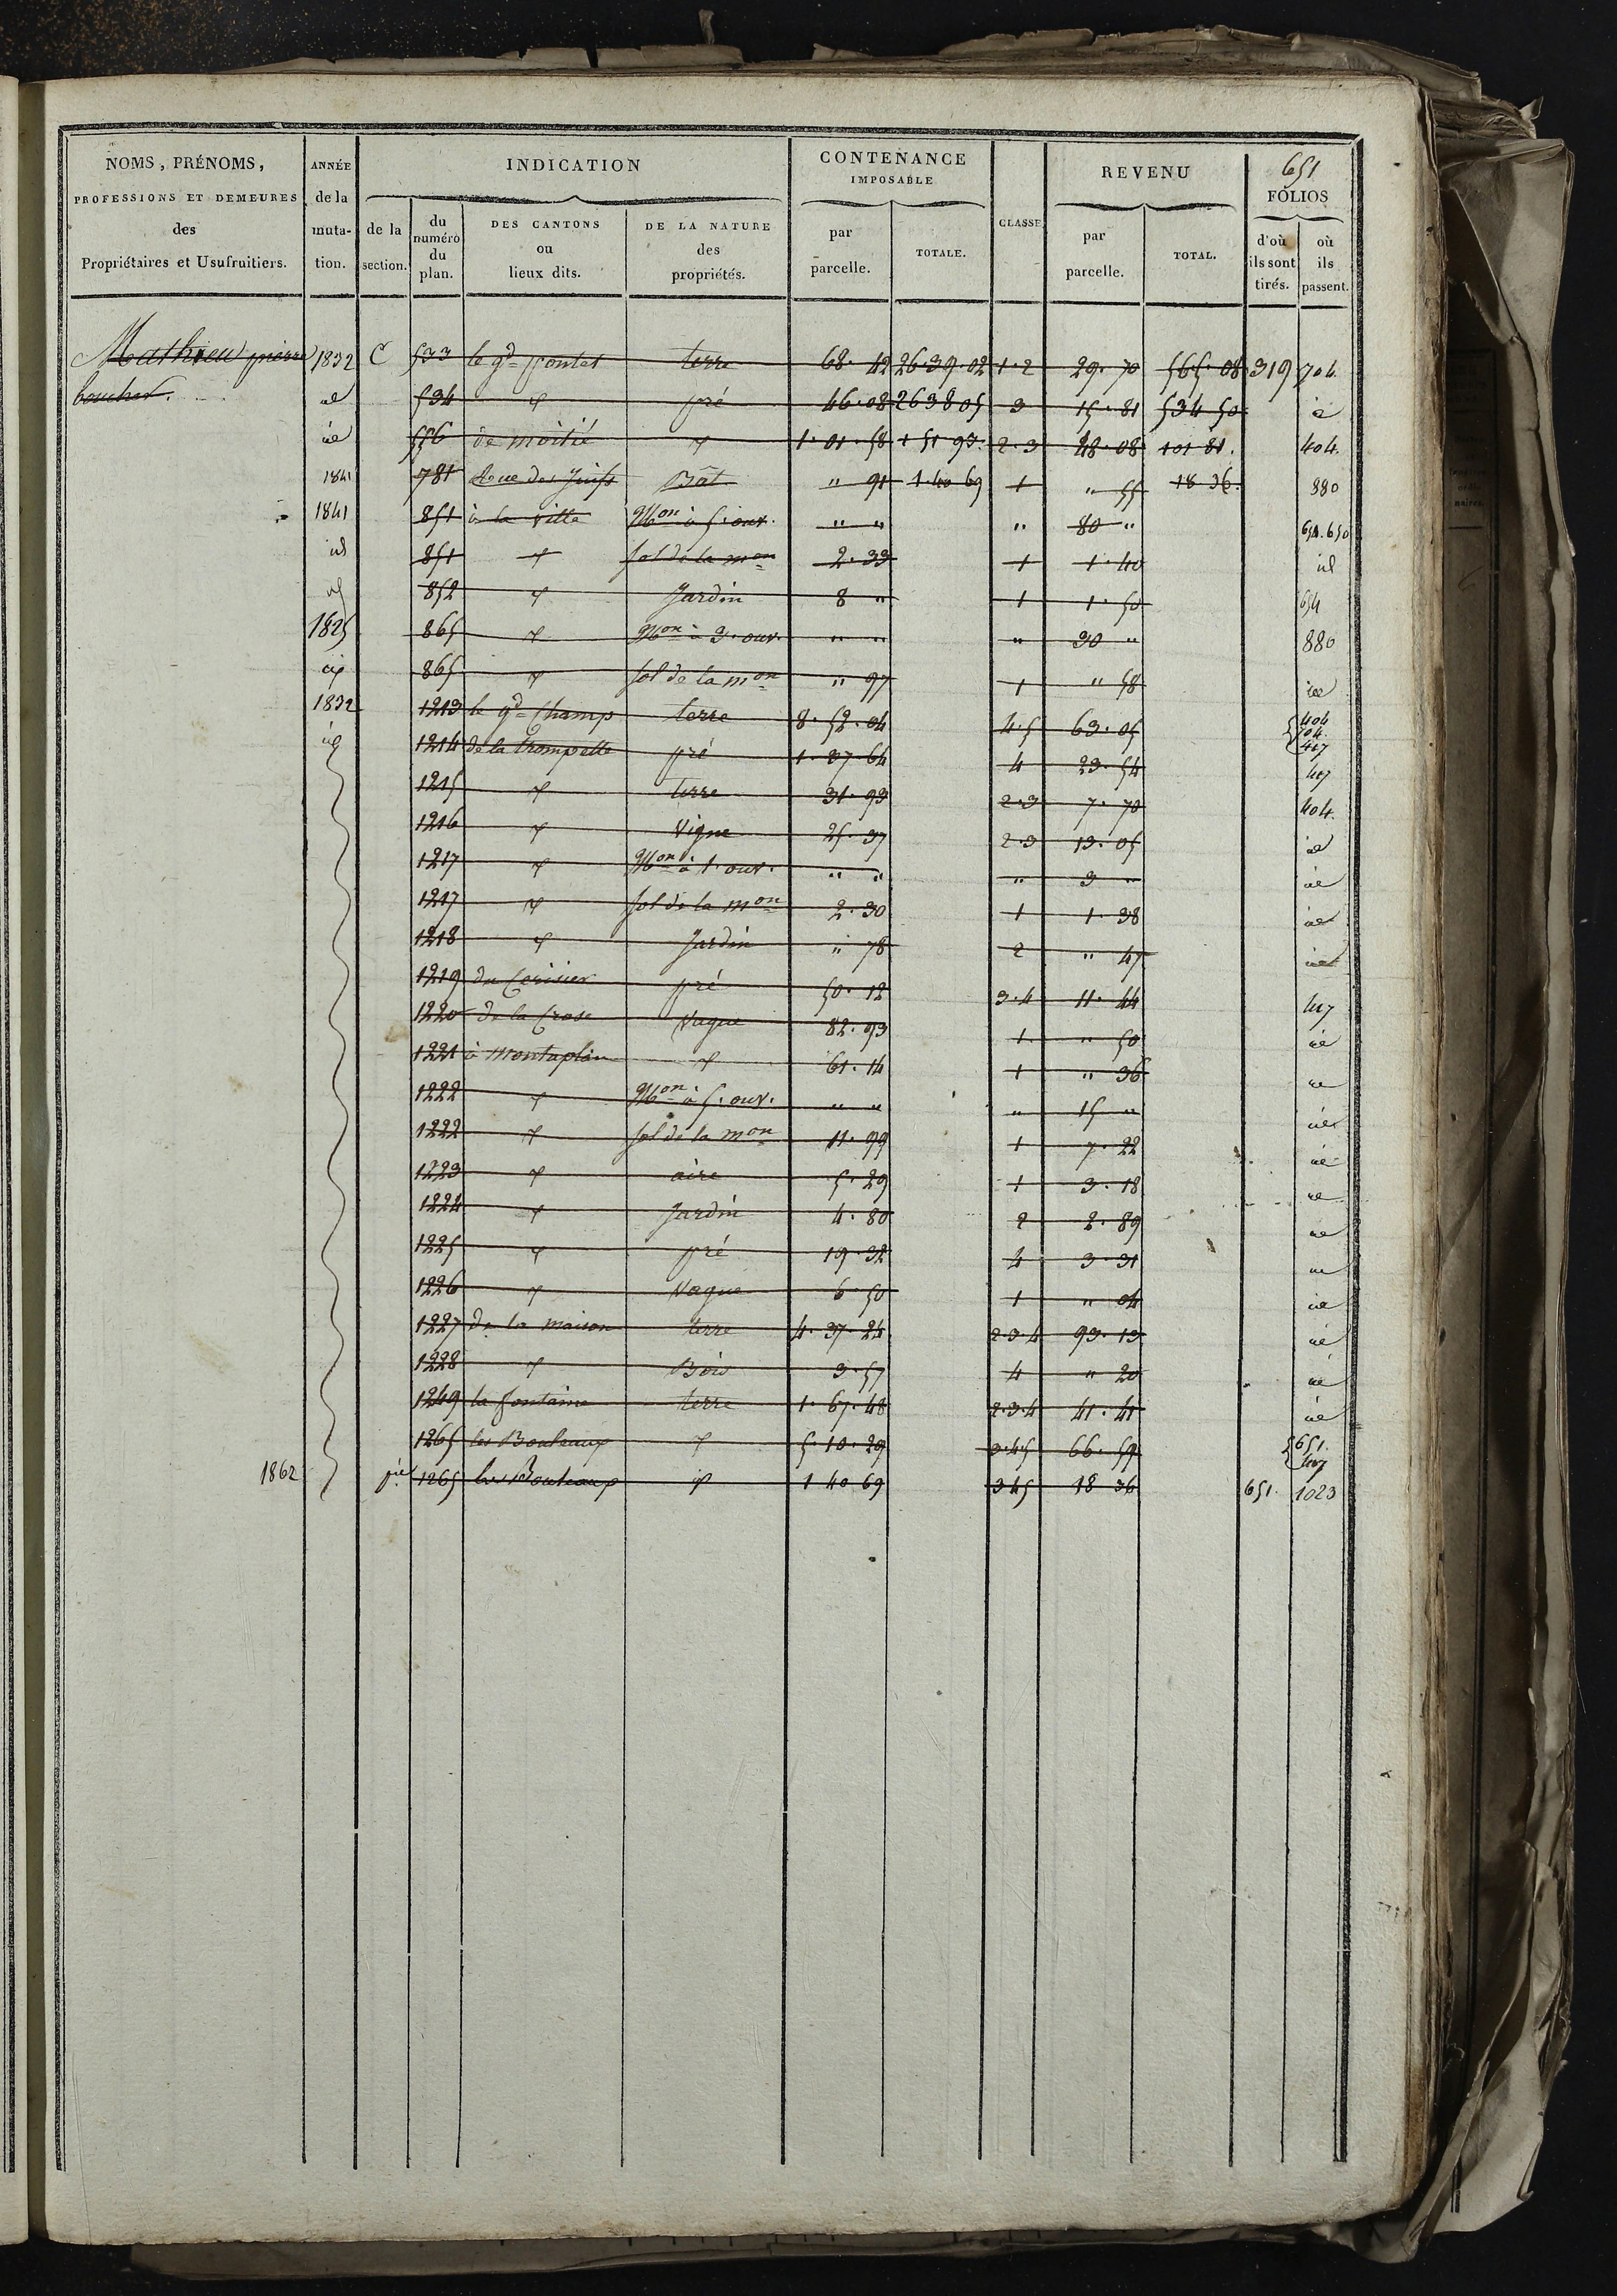 651
NOMS, PRÉNOMS, PROFESSIONS ET DEMEURES des Propriétaires et Usufruitiers.
ANNÉE de la muta- tion.
INDICATION
de la section.
du numéro du plan.
DES CANTONS ou lieux dits.
DE LA NATURE des propriétés.
CONTENANCE IMPOSABLE
par parcelle.
TOTALE.
CLASSE
REVENU
par parcelle.
TOTAL.
FOLIOS
d'où ils sont tirés.
où ils passent.
Mathieu pierre 1832 C 533 le gd pontet terre 68. 42 26.39.02 1.2 29. 70 565. 08 319 704
boucher. id 534 pré 46.08 26 38 05 3 15. 81 534 50 id
id 556 de moitié 1. 01. 58 1 51 93. 2.3 48. 08 101 81. 404.
1841 781 Rue des Juifs Bât. " 91 1.40 69 1 " 55 18 36. 880
1841 851 à la ville Mon à 5. ouv. " " " 80 " 654.650
id 851 sol de la mon 2. 33 1 1. 40 id
id 852 Jardin 8 " 1 1. 50 654
1825 865 Mon à 3. ouv. " " " 30 " 880
865 sol de la mon " 97 1 " 58 id
1832 1213 le gd Champ terre 8. 52. 04 4.5 63. 05 404 704 417
id 1214 de la trompette pré 1. 37. 64 4 23. 54 417
1215 terre 31. 93 2.3 7. 70 404.
1216 Vigne 25. 37 2.3 13. 05 id
1217 Mon à 1. ouv. " " " 3 " id
1217 sol de la mon 2. 30 1 1. 38 id
1218 Jardin " 78 2 " 47 id
1219 du Cerisier pré 50. 12 3.4 11. 44 417
1220 de la Crose Vague 82. 93 1. " 50 id
1221 à montaplan 61. 14 1 " 36 id
1222 Mon à 5. ouv. " " " 15 " id
1222 sol de la mon 11. 99 1 7. 22 id
1223 aire 5. 29 1 3. 18 id
1224 Jardin 4. 80 2 2. 89 id
1225 pré 19. 32 4 3. 31 id
1226 Vague 6. 50 1 " 04 id
1227 de la maison terre 4. 37. 24 2.3.4 93. 13 id
1228 Bois 3. 57 4 " 20 id
1249 la fontaine terre 1. 67. 48 2.3.4 41. 41 id
1265 les Bouleaux 5. 10. 29 3.4.5 66. 59 651. 417
1862 pie 1265 les Bouleaux id 1 40 69 345 18 36 651. 1023